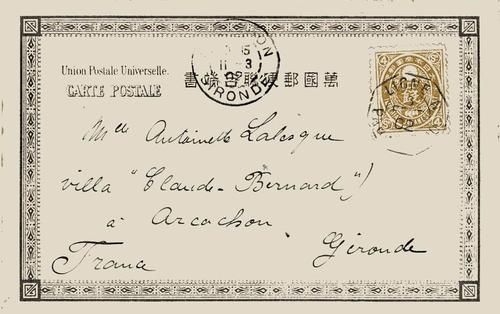 Union Postale Universelle.
CARTE POSTALE
書端合聯便郵國萬
Mlle Antoinette Lalesque
villa "Claude-Bernard"
à Arcachon
Gironde
France
11 3
02
GIRONDE